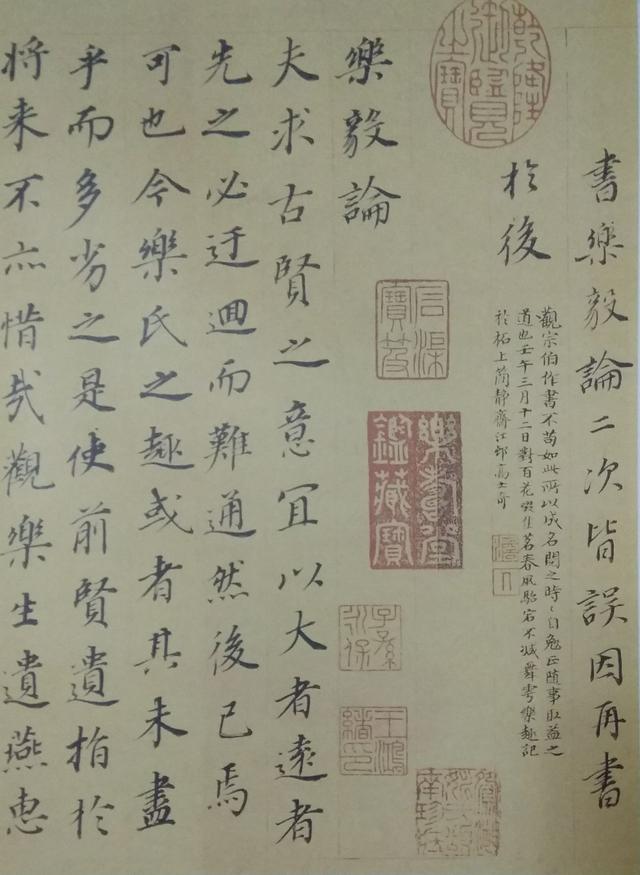 乾隆御覽之寶
書樂毅論二次皆誤因再書
於後
觀宗伯作書不苟如此所以成名閱之時〻自勉正隨事取益之
道也壬午三月十二日對百花啜佳茗春風駘宕不减舞雩樂趣記
於柘上簡靜齋江邨高士奇
石渠寶笈
樂壽堂鑑藏寶
子孫永保
王鴻緒印
樂毅論
夫求古賢之意冝以大者遠者
先之必迂迴而難通然後已焉
可也今樂氏之趣或者其未盡
乎而多劣之是使前賢遺指於
将来不亦惜哉觀樂生遺燕惠